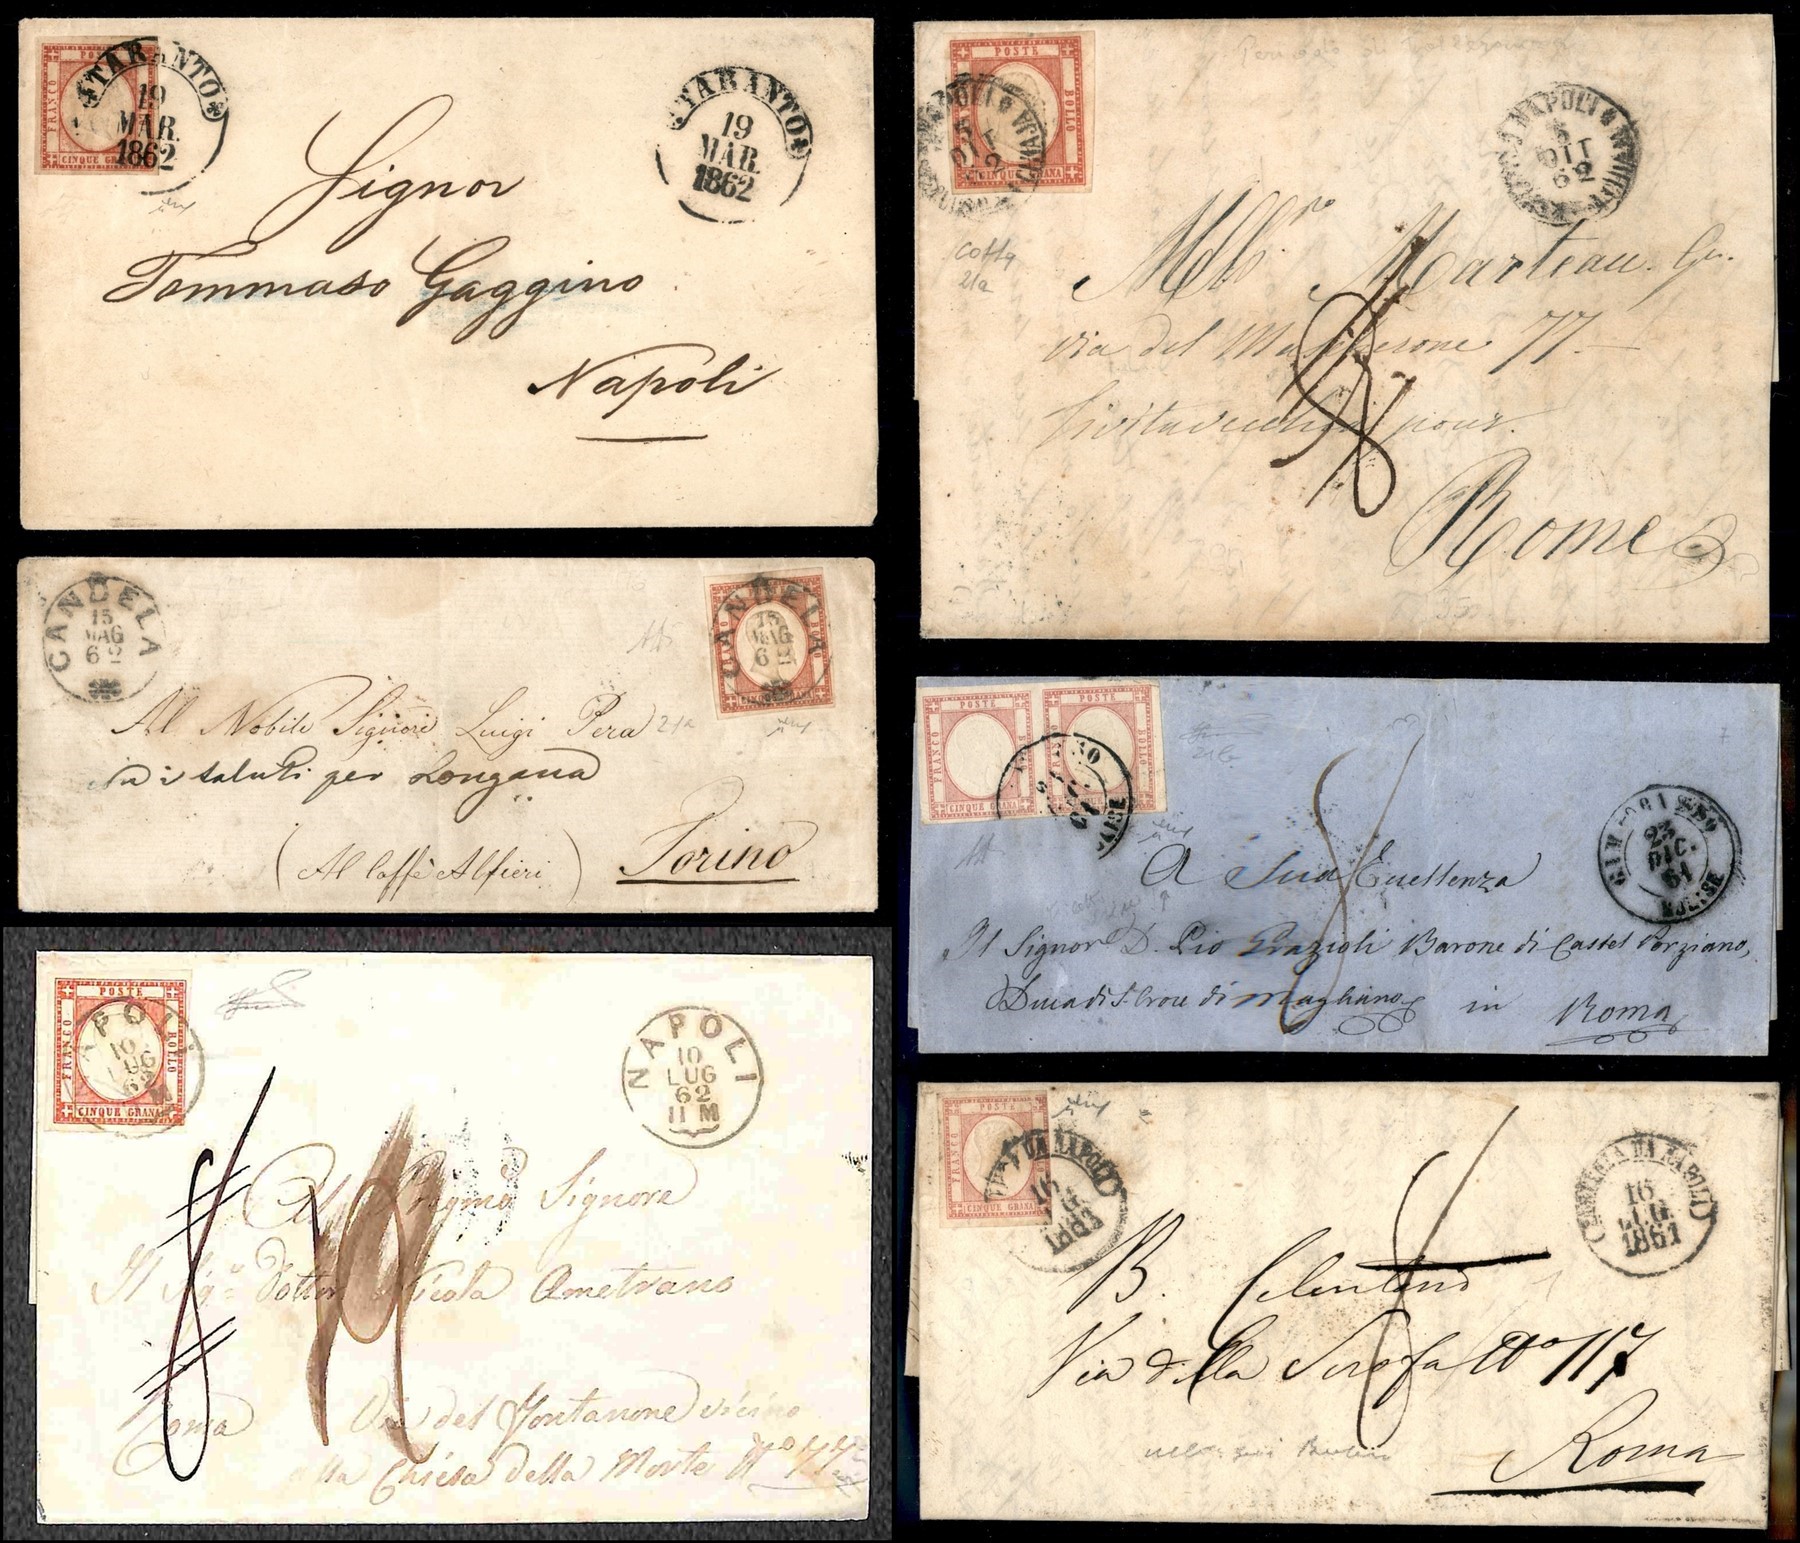 POSTE
FRANCO
CINQUE GRANA
TARANTO
19
MAR.
1862
TARANTO
19
MAR.
1862
Signor
Tommaso Gaggino
Napoli
POSTE
BOLLO
CINQUE GRANA
5
62
NAPOLI
5
62
Coffq
21a
Marteau
via del 77
pour
Rome
CANDELA
15
MAG
62
CANDELA
15
MAG
62
CINQUE GRANA
Al Nobile Signore Luigi Pera
21a
saluti per Longana
(Al Caffè Alfieri)
Torino
POSTE
FRANCO
BOLLO
CINQUE GRANA
POSTE
BOLLO
CINQUE GRANA
23
DIC.
61
MOLISE
A Sua Eccellenza
Il Signor D. Pio Grazioli Barone di Castel Porziano,
Duca di S. Croce di Magliano in Roma
POSTE
FRANCO
BOLLO
CINQUE GRANA
NAPOLI
10
LUG
62
NAPOLI
10
LUG
62
11 M
8
Signore
Il Sig.r Nicola Ametrano
Roma Via del Fontanone vicino
alla Chiesa della Morte No 77
POSTE
FRANCO
CINQUE GRANA
16
1861
NAPOLI
16
LUG.
1861
B. Celentano
Via della Scrofa No 117
Roma